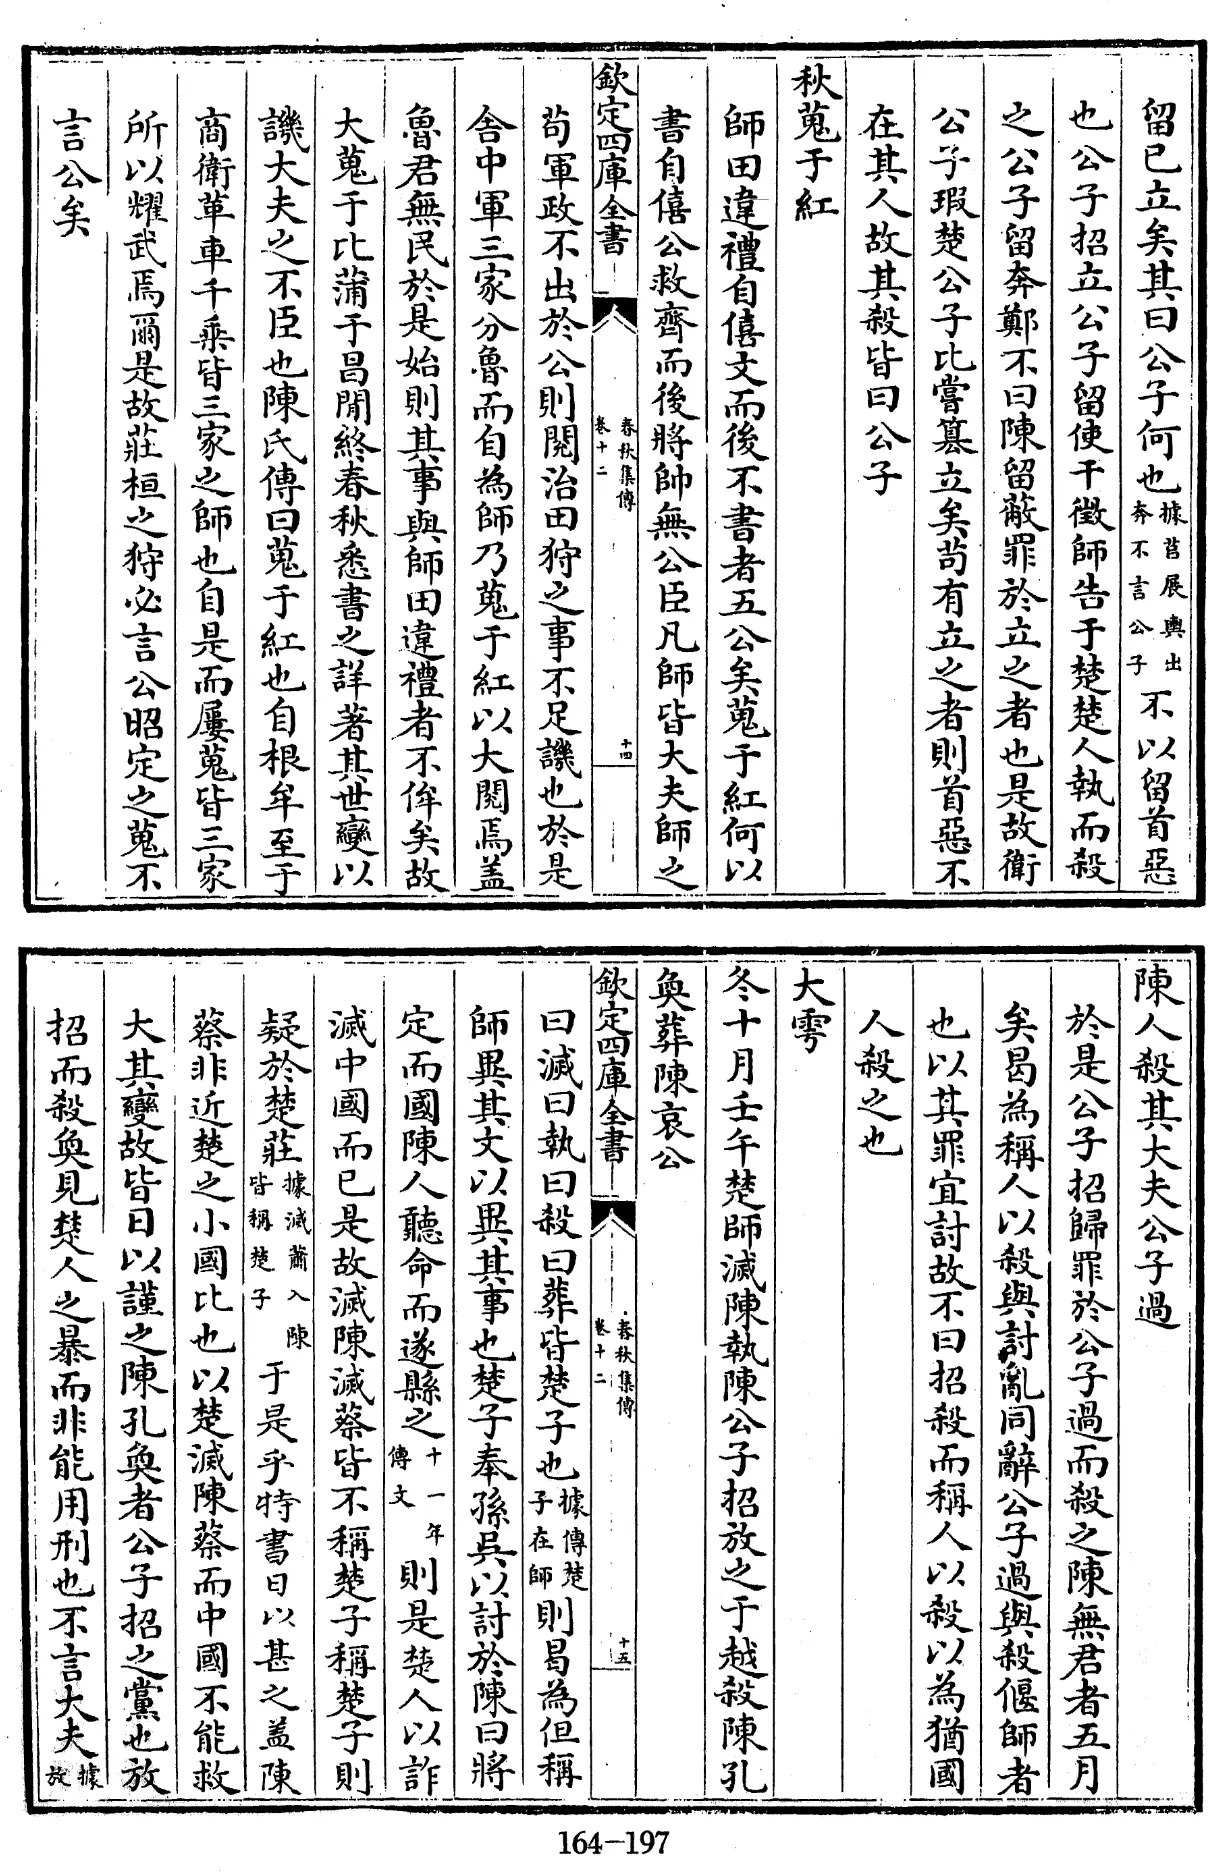 留已立矣其曰公子何也據莒展輿出奔不言公子不以留首惡
也公子招立公子留使干徵師告于楚楚人執而殺
之公子留奔鄭不曰陳留蔽罪於立之者也是故衛
公子瑕楚公子比嘗簒立矣茍有立之者則首惡不
在其人故其殺皆曰公子
秋蒐于紅
師田違禮自僖文而後不書者五公矣蒐于紅何以
書自僖公救齊而後將帥無公臣凡師皆大夫師之
欽定四庫全書
春秋集傳
卷十二
十四
茍軍政不出於公則閱治田狩之事不足譏也於是
舍中軍三家分魯而自為師乃蒐于紅以大閱焉盖
魯君無民於是始則其事與師田違禮者不侔矣故
大蒐于比蒲于昌閒終春秋悉書之詳著其世變以
譏大夫之不臣也陳氏傳曰蒐于紅也自根牟至于
商衛革車千乘皆三家之師也自是而屢蒐皆三家
所以耀武焉爾是故莊桓之狩必言公昭定之蒐不
言公矣
陳人殺其大夫公子過
於是公子招歸罪於公子過而殺之陳無君者五月
矣曷為稱人以殺與討亂同辭公子過與殺偃師者
也以其罪宜討故不曰招殺而稱人以殺以為猶國
人殺之也
大雩
冬十月壬午楚師滅陳執陳公子招放之于越殺陳孔
奐葬陳哀公
欽定四庫全書
春秋集傳
卷十二
十五
曰滅曰執曰殺曰葬皆楚子也據傳楚子在師則曷為但稱
師異其文以異其事也楚子奉孫吳以討於陳曰將
定而國陳人聽命而遂縣之十一年傳文則是楚人以詐
滅中國而已是故滅陳滅蔡皆不稱楚子稱楚子則
疑於楚莊據滅蕭入陳皆稱楚子于是乎特書日以甚之盖陳
蔡非近楚之小國比也以楚滅陳蔡而中國不能救
大其變故皆日以謹之陳孔奐者公子招之黨也放
招而殺奐見楚人之暴而非能用刑也不言大夫據放
164-197